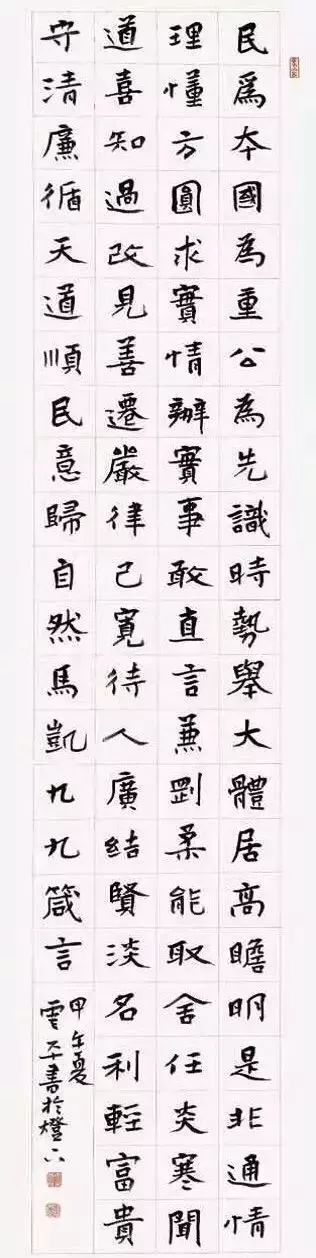 民爲本國為重公為先識時勢舉大體居高瞻明是非通情
理懂方圓求實情辦實事敢直言兼剛柔能取舍任炎寒聞
道喜知過改見善遷嚴律己寬待人廣結賢淡名利輕富貴
守清廉循天道順民意歸自然馬凱九九箴言
甲午夏
雲平書於燈下